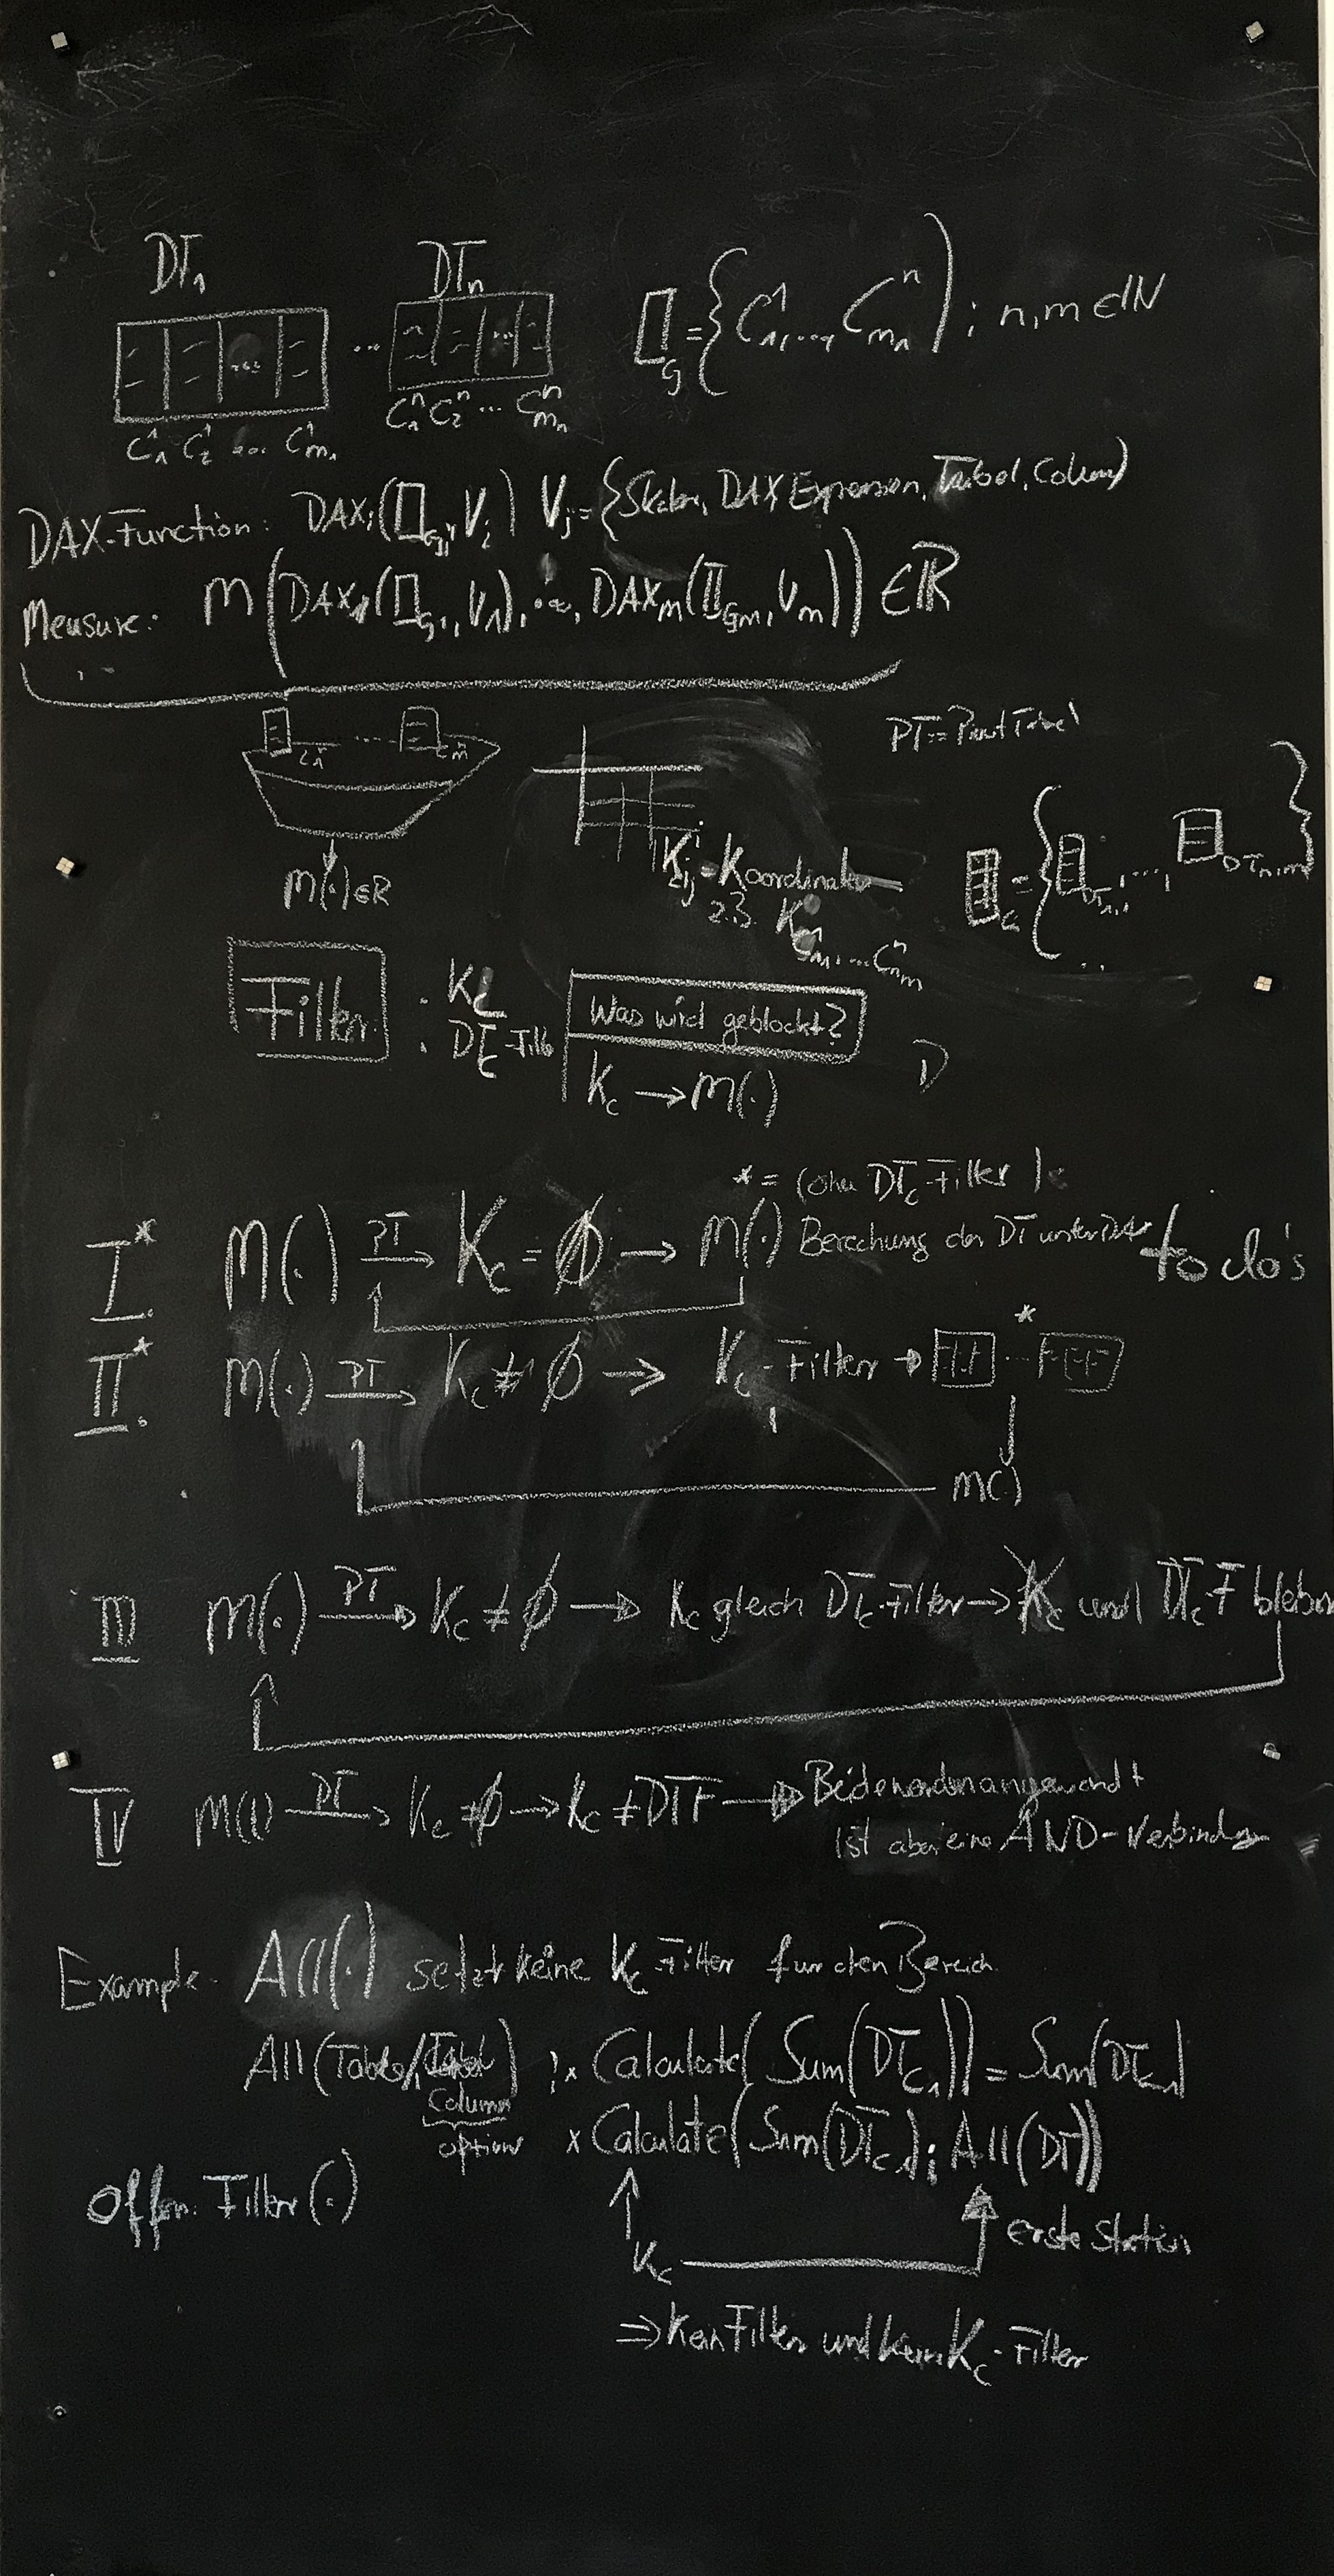 DT₁ DTₙ
C₁¹ C₂¹ ... Cₘ₁¹ ... C₁ⁿ C₂ⁿ ... Cₘₙⁿ
= { C₁¹, ..., Cₘₙⁿ } ; n, m ∈ ℕ
DAX-Function: DAXⱼ( , Vⱼ) Vⱼ = {Skalar, DAX Expression, Tabel, Column}
Measure: M(DAX₁( , V₁), ..., DAXₘ( , Vₘ)) ∈ ℝ
PT = Pivot Tabel
M(·) ∈ R
Kᵢⱼ = Koordinate
z.B. K C₁¹, ... Cₘⁿ
Filter : K_C
: DT_C-Filter
Was wird geblockt?
K_C → M(·)
D
* = (ohne DT_C-Filter)
I.* M(·) PT→ K_C = ∅ → M(·) Berechung der DT unter
to do's
II.* M(·) PT→ K_C ≠ ∅ → K_C-Filter → ... *
M(·)
III M(·) PT→ K_C ≠ ∅ → K_C gleich DT_C-Filter → K_C und DT_C-F bleiben
IV M(·) PT→ K_C ≠ ∅ → K_C ≠ DTF → Beide werden angewandt
Ist aber eine AND-Verbindung
Example: All(·) setzt keine K_C-Filter für den Bereich
All(Table/Tabel ) ; × Calculate(Sum(DT_C₁)) = Sum(DT_C₁)
Column
option
× Calculate(Sum(DT_C₁); All(DT))
Offen: Filter(·)
K_C
erste Station
⇒ Kein Filter und kein K_C-Filter